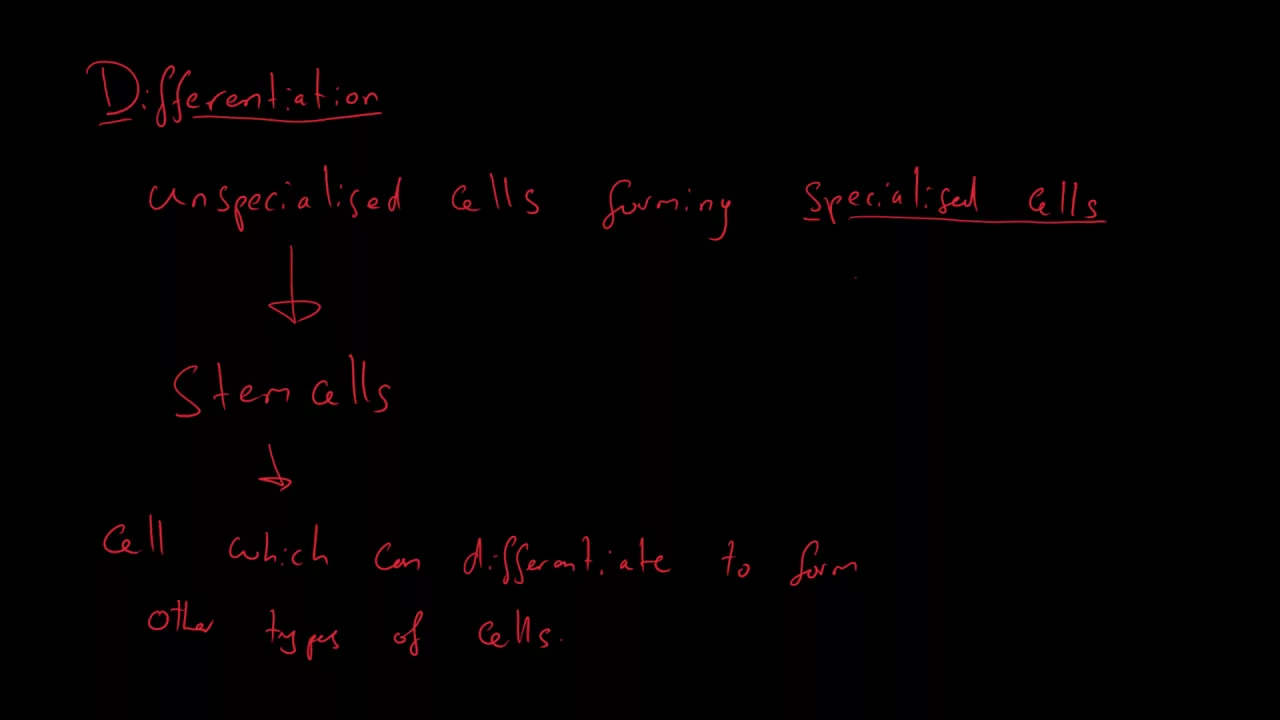 Differentiation
unspecialised cells forming specialised cells
Stem cells
Cell which can differentiate to form
other types of cells.